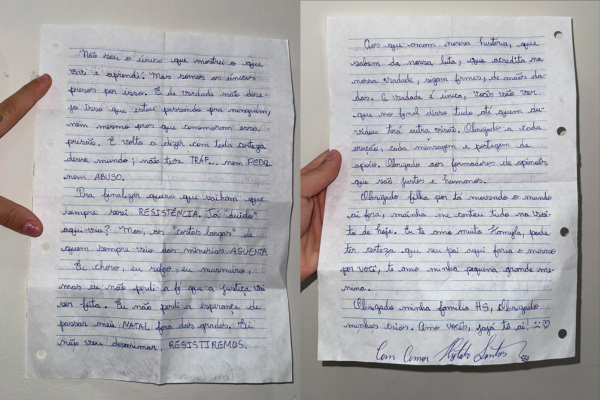 Não sou o único que mostrei o que
vivi e aprendi; Mas somos os únicos
presos por isso. E de verdade não dese-
jo isso que estou passando pra ninguém,
nem mesmo pros que comemoram essa
prisão. E volto a dizer com toda certeza
desse mundo; não teve TRÁF... nem PEDO
nem ABUSO.
Pra finalizar quero que saibam que
sempre serei RESISTÊNCIA. Tá doido"
aqui viu? Mas, os "costas largas" de
quem sempre veio das minorias AGUENTA
Eu choro, eu sofro, eu murmuro,
mas eu não perdi a fé que a justiça vai
ser feita. Eu não perdi a esperança de
passar meu NATAL fora das grades. Ei
não vou desanimar, RESISTIREMOS.
Aos que amam nossa história, que
sabem da nossa luta, que acredita na
nossa verdade, sigam firmes, de mãos da-
das. A verdade é única, vocês vão ver
que no final disso tudo até quem du-
vidou terá outra visão. Obrigado a cada
oração, cada mensagem e postagem de
apoio. Obrigado aos formadores de opinião
que são justos e humanos.
Obrigado filha por tá movendo o mundo
ai fora, mainha me contou tudo na visi-
ta de hoje. Eu te amo muito Kamyla, pode
ter certeza que seu pai aqui faria o mesmo
por você, te amo minha pequena grande me-
nina.
Obrigado minha família HS, Obrigado
minhas crias. Amo vocês, fajá té ai!
Com Amor Hytalo Santos